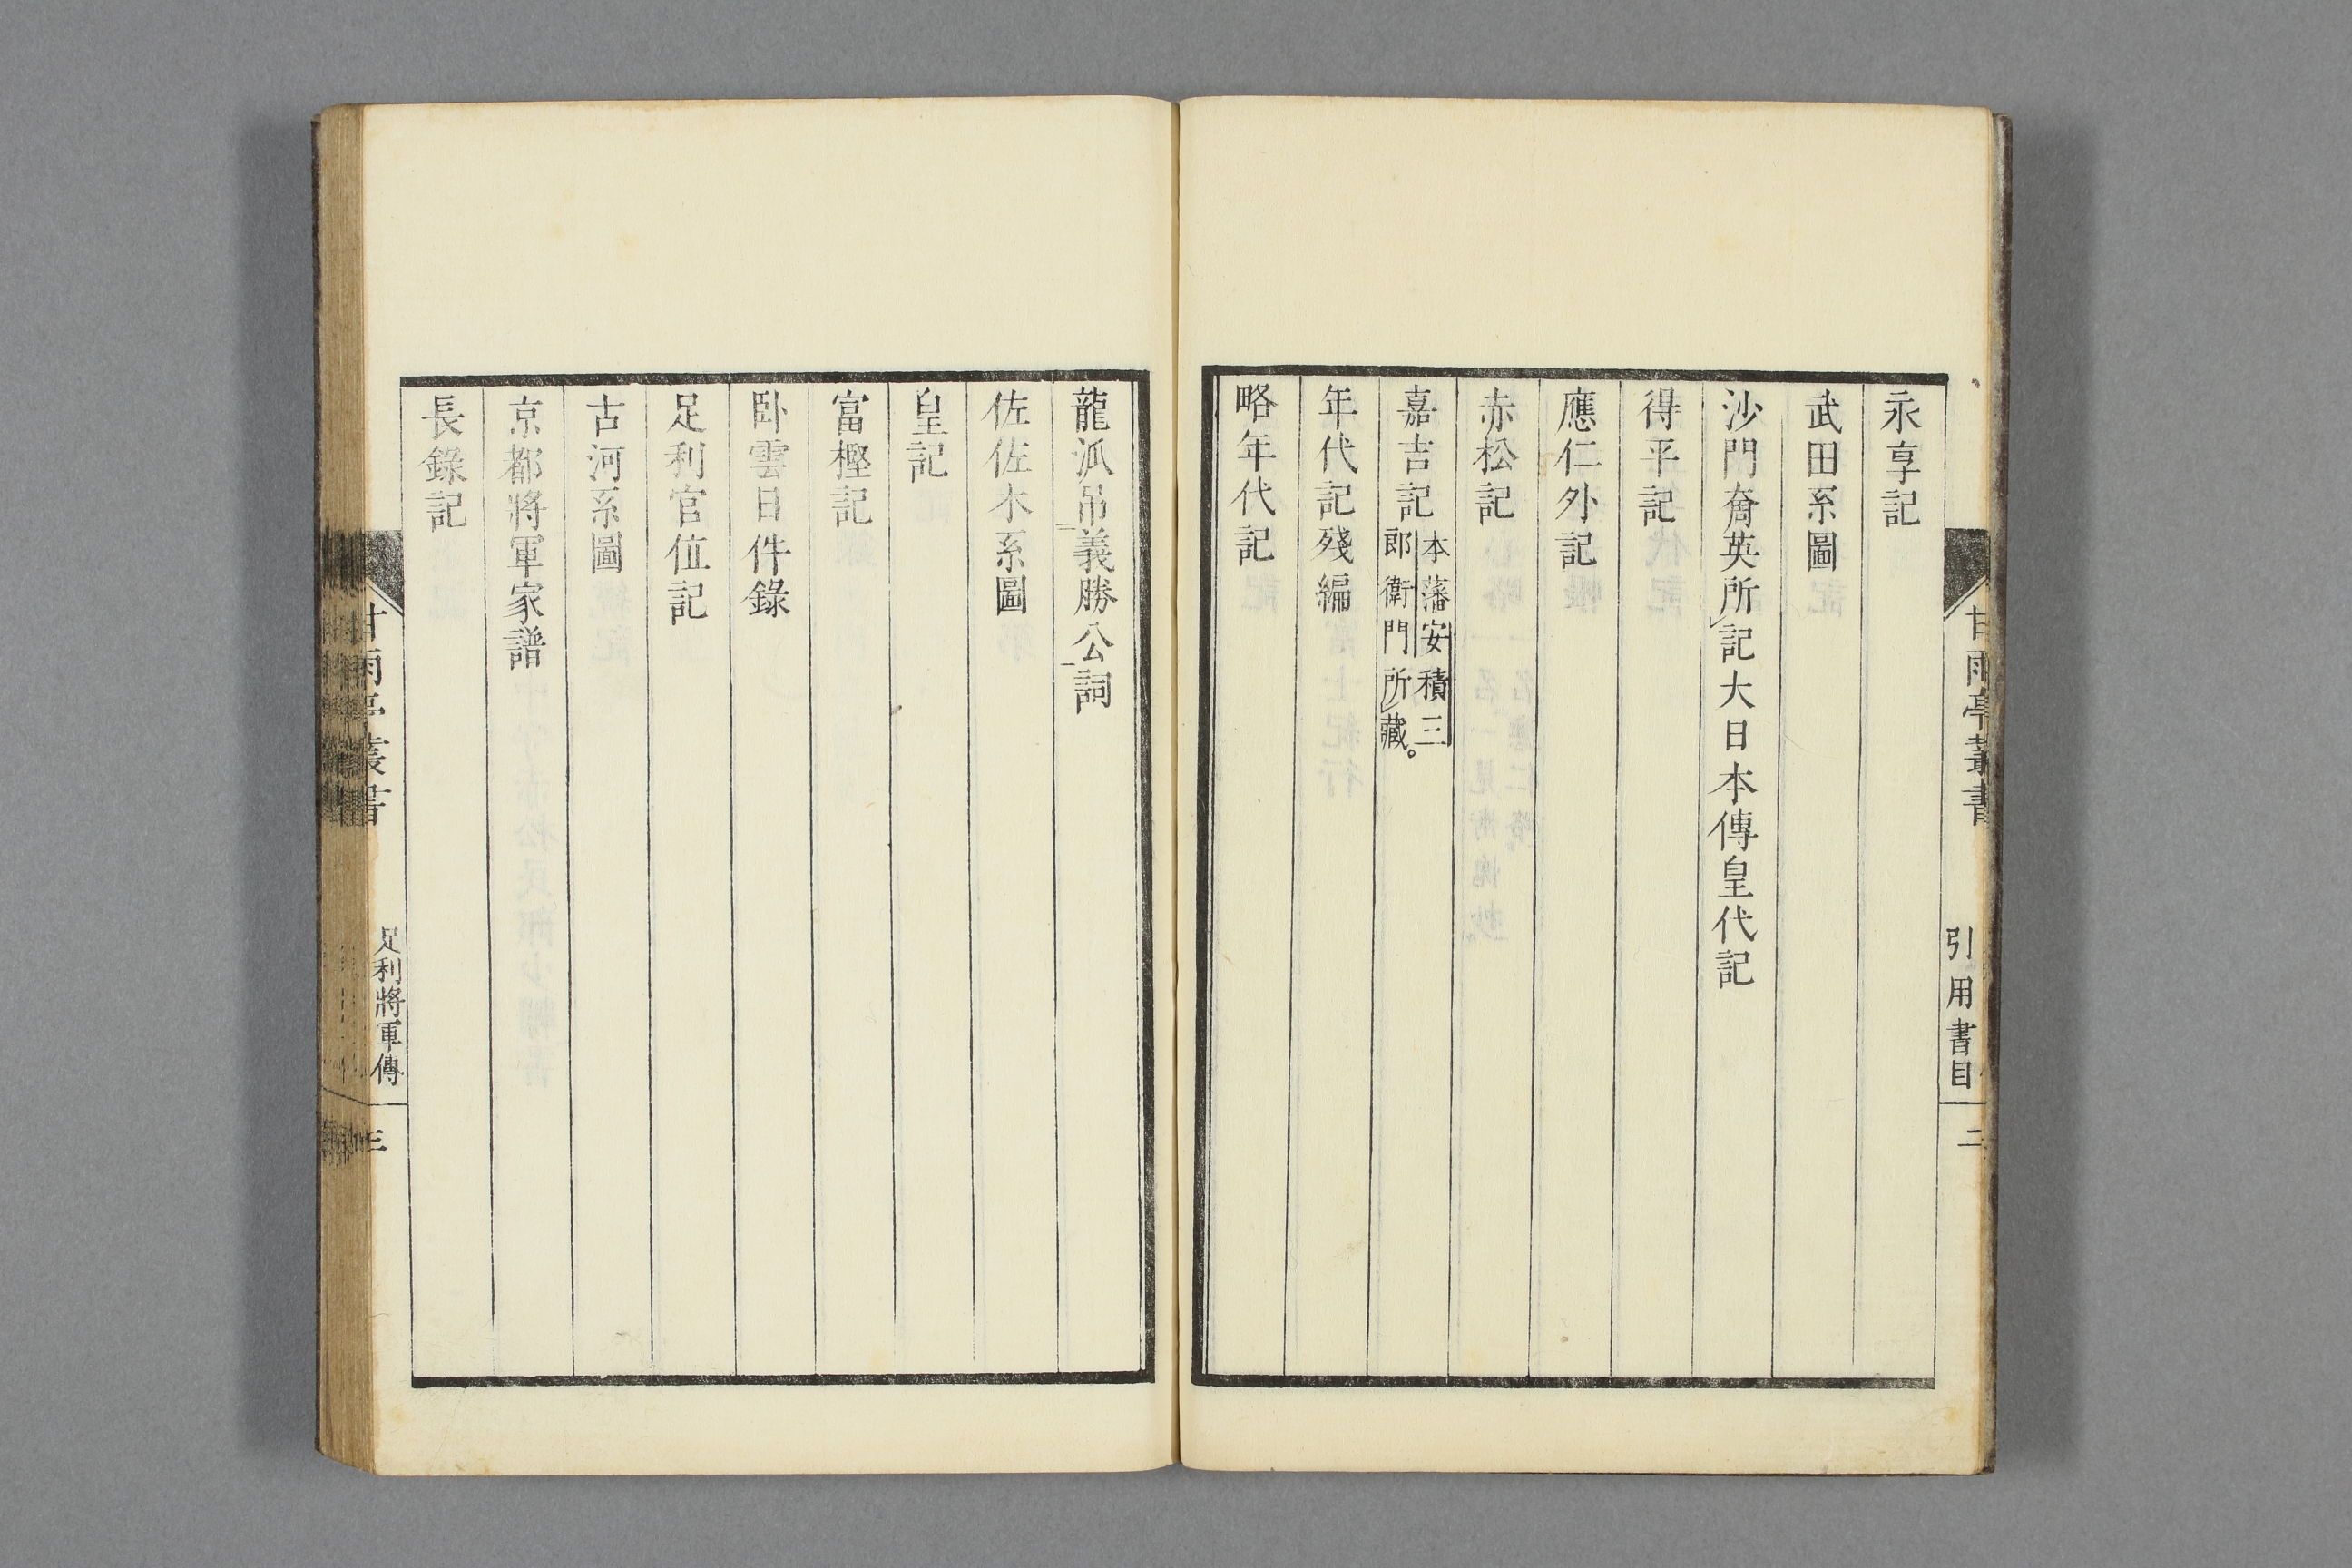 永享記
武田系圖
沙門奝英所記大日本傳皇代記
得平記
應仁外記
赤松記
嘉吉記
本藩安積三
郎衛門所藏。
年代記殘編
略年代記
甘雨亭叢書
引用書目
二
龍派吊義勝公詞
佐佐木系圖
皇記
富樫記
臥雲日件錄
足利官位記
古河系圖
京都將軍家譜
長錄記
甘雨亭叢書
足利將軍傳
三